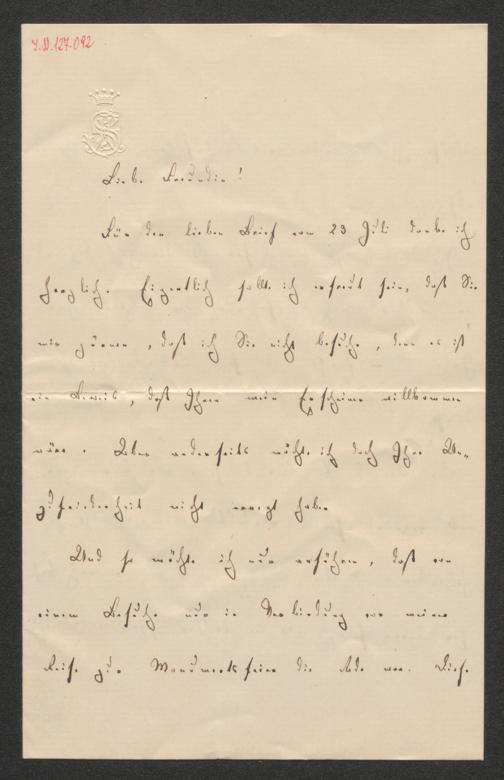 I.N.127.092
Liebe Freundin!
Für den lieben Brief vom 23 Juli danke ich
herzlich. Eigentlich sollte ich erfreut sein, daß Sie
mir zürnen, daß ich Sie nicht besuche, denn es ist
ein Beweis, daß Ihnen mein Erscheinen willkommen
wäre. Aber anderseits möchte ich doch Ihre Un-
zufriedenheit nicht erregt haben
Und so möchte ich nur erwähnen, daß von
einem Besuche nur in Verbindung mit meiner
Reise zur Monumentsfeier die Rede war. Diese